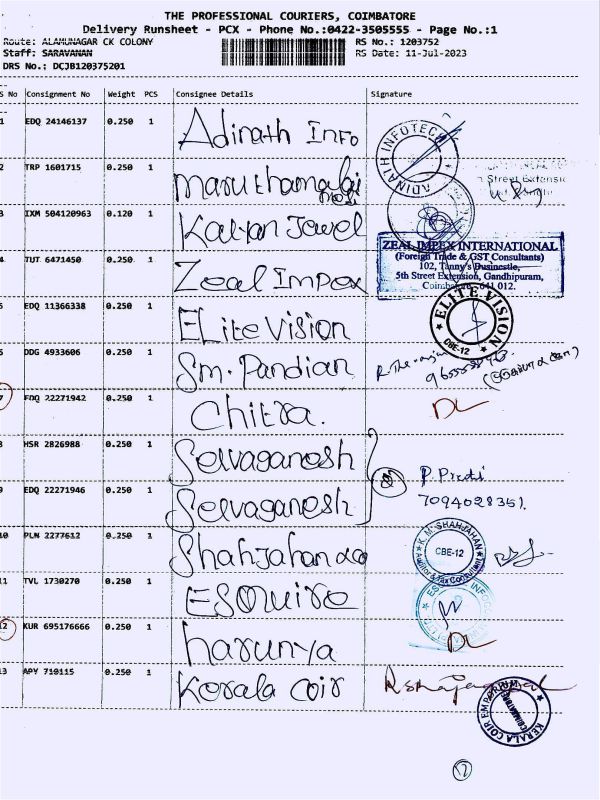 THE PROFESSIONAL COURIERS, COIMBATORE
Delivery Runsheet - PCX - Phone No.:0422-3505555 - Page No.:1
Route: ALAMUNAGAR CK COLONY
RS No.: 1203752
Staff: SARAVANAN
RS Date: 11-Jul-2023
DRS No.: DCJB120375201
S No Consignment No Weight PCS Consignee Details Signature
1 EDQ 24146137 0.250 1 Adinath Info
ADINATH INFOTECH
2 TRP 1601715 0.250 1 maruthamalai
Street Extension
3 IXM 504120963 0.120 1 Kalyan Jewel
4 TUT 6471450 0.250 1 Zeal Impex
ZEAL IMPEX INTERNATIONAL
(Foreign Trade & GST Consultants)
102, Tanny's Businestle,
5th Street Extension, Gandhipuram,
Coimbatore - 641 012.
5 EDQ 11366338 0.250 1 ELite Vision
ELITE VISION
CBE-12
6 DDG 4933606 0.250 1 Sm. Pandian
7 EDQ 22271942 0.250 1 Chitra.
DL
8 HSR 2826988 0.250 1 Selvaganesh
2
P. Preti
9 EDQ 22271946 0.250 1 Selvaganesh
7094028351.
10 PLN 2277612 0.250 1 Shahjahan &co
K.M. SHAHJAHAN
CBE-12
Auditor & Tax Consultant
11 TVL 1730270 0.250 1 ESQuire
12 KUR 695176666 0.250 1 harunya
DL
13 APY 710115 0.250 1 Kerala Coir
KERALA COIR EMPORIUM
COIMBATORE
12